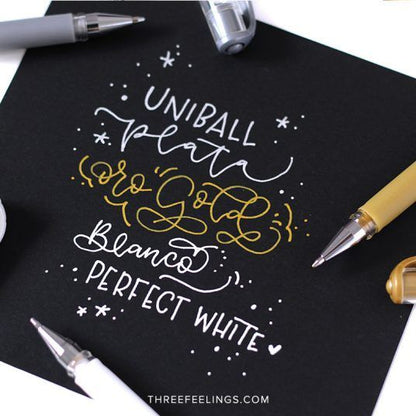 UNIBALL
plata
(oro "Gold"}
Blanco
PERFECT WHITE
THREEFEELINGS.COM